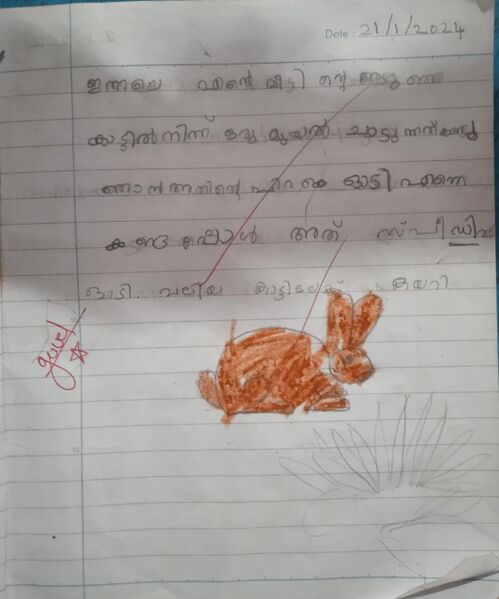 Date: 21/1/2024
ഇന്നലെ എന്റെ വീട്ടി ന്റെ അടു ത്തെ
കാട്ടിൽ നിന്ന് ഒരു മുയൽ ചാടു ന്നത് കണ്ടു
ഞാൻ അതിന്റെ പിറ കെ ഓടി എന്നെ
കണ്ട പ്പോൾ അത് സ്പീഡിൽ
ഓടി വലിയ കാട്ടിലേക്ക് കയറി
good